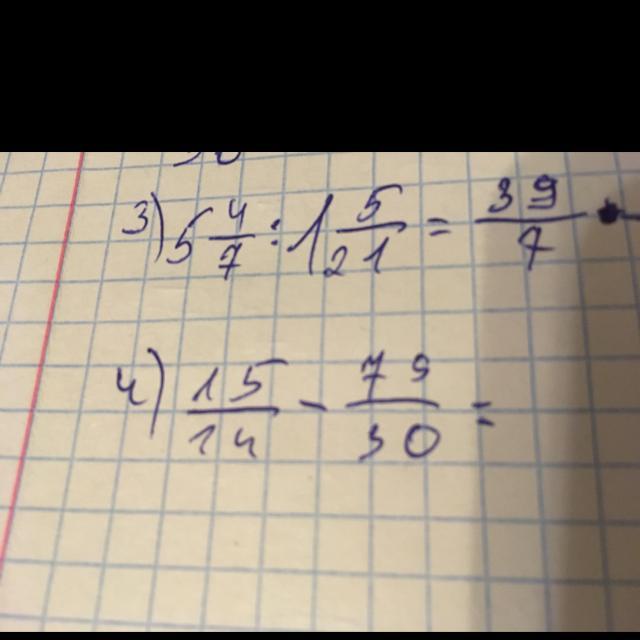 3) 5 4/7 : 1 5/21 = 39/7 ·
4) 15/14 - 79/30 =